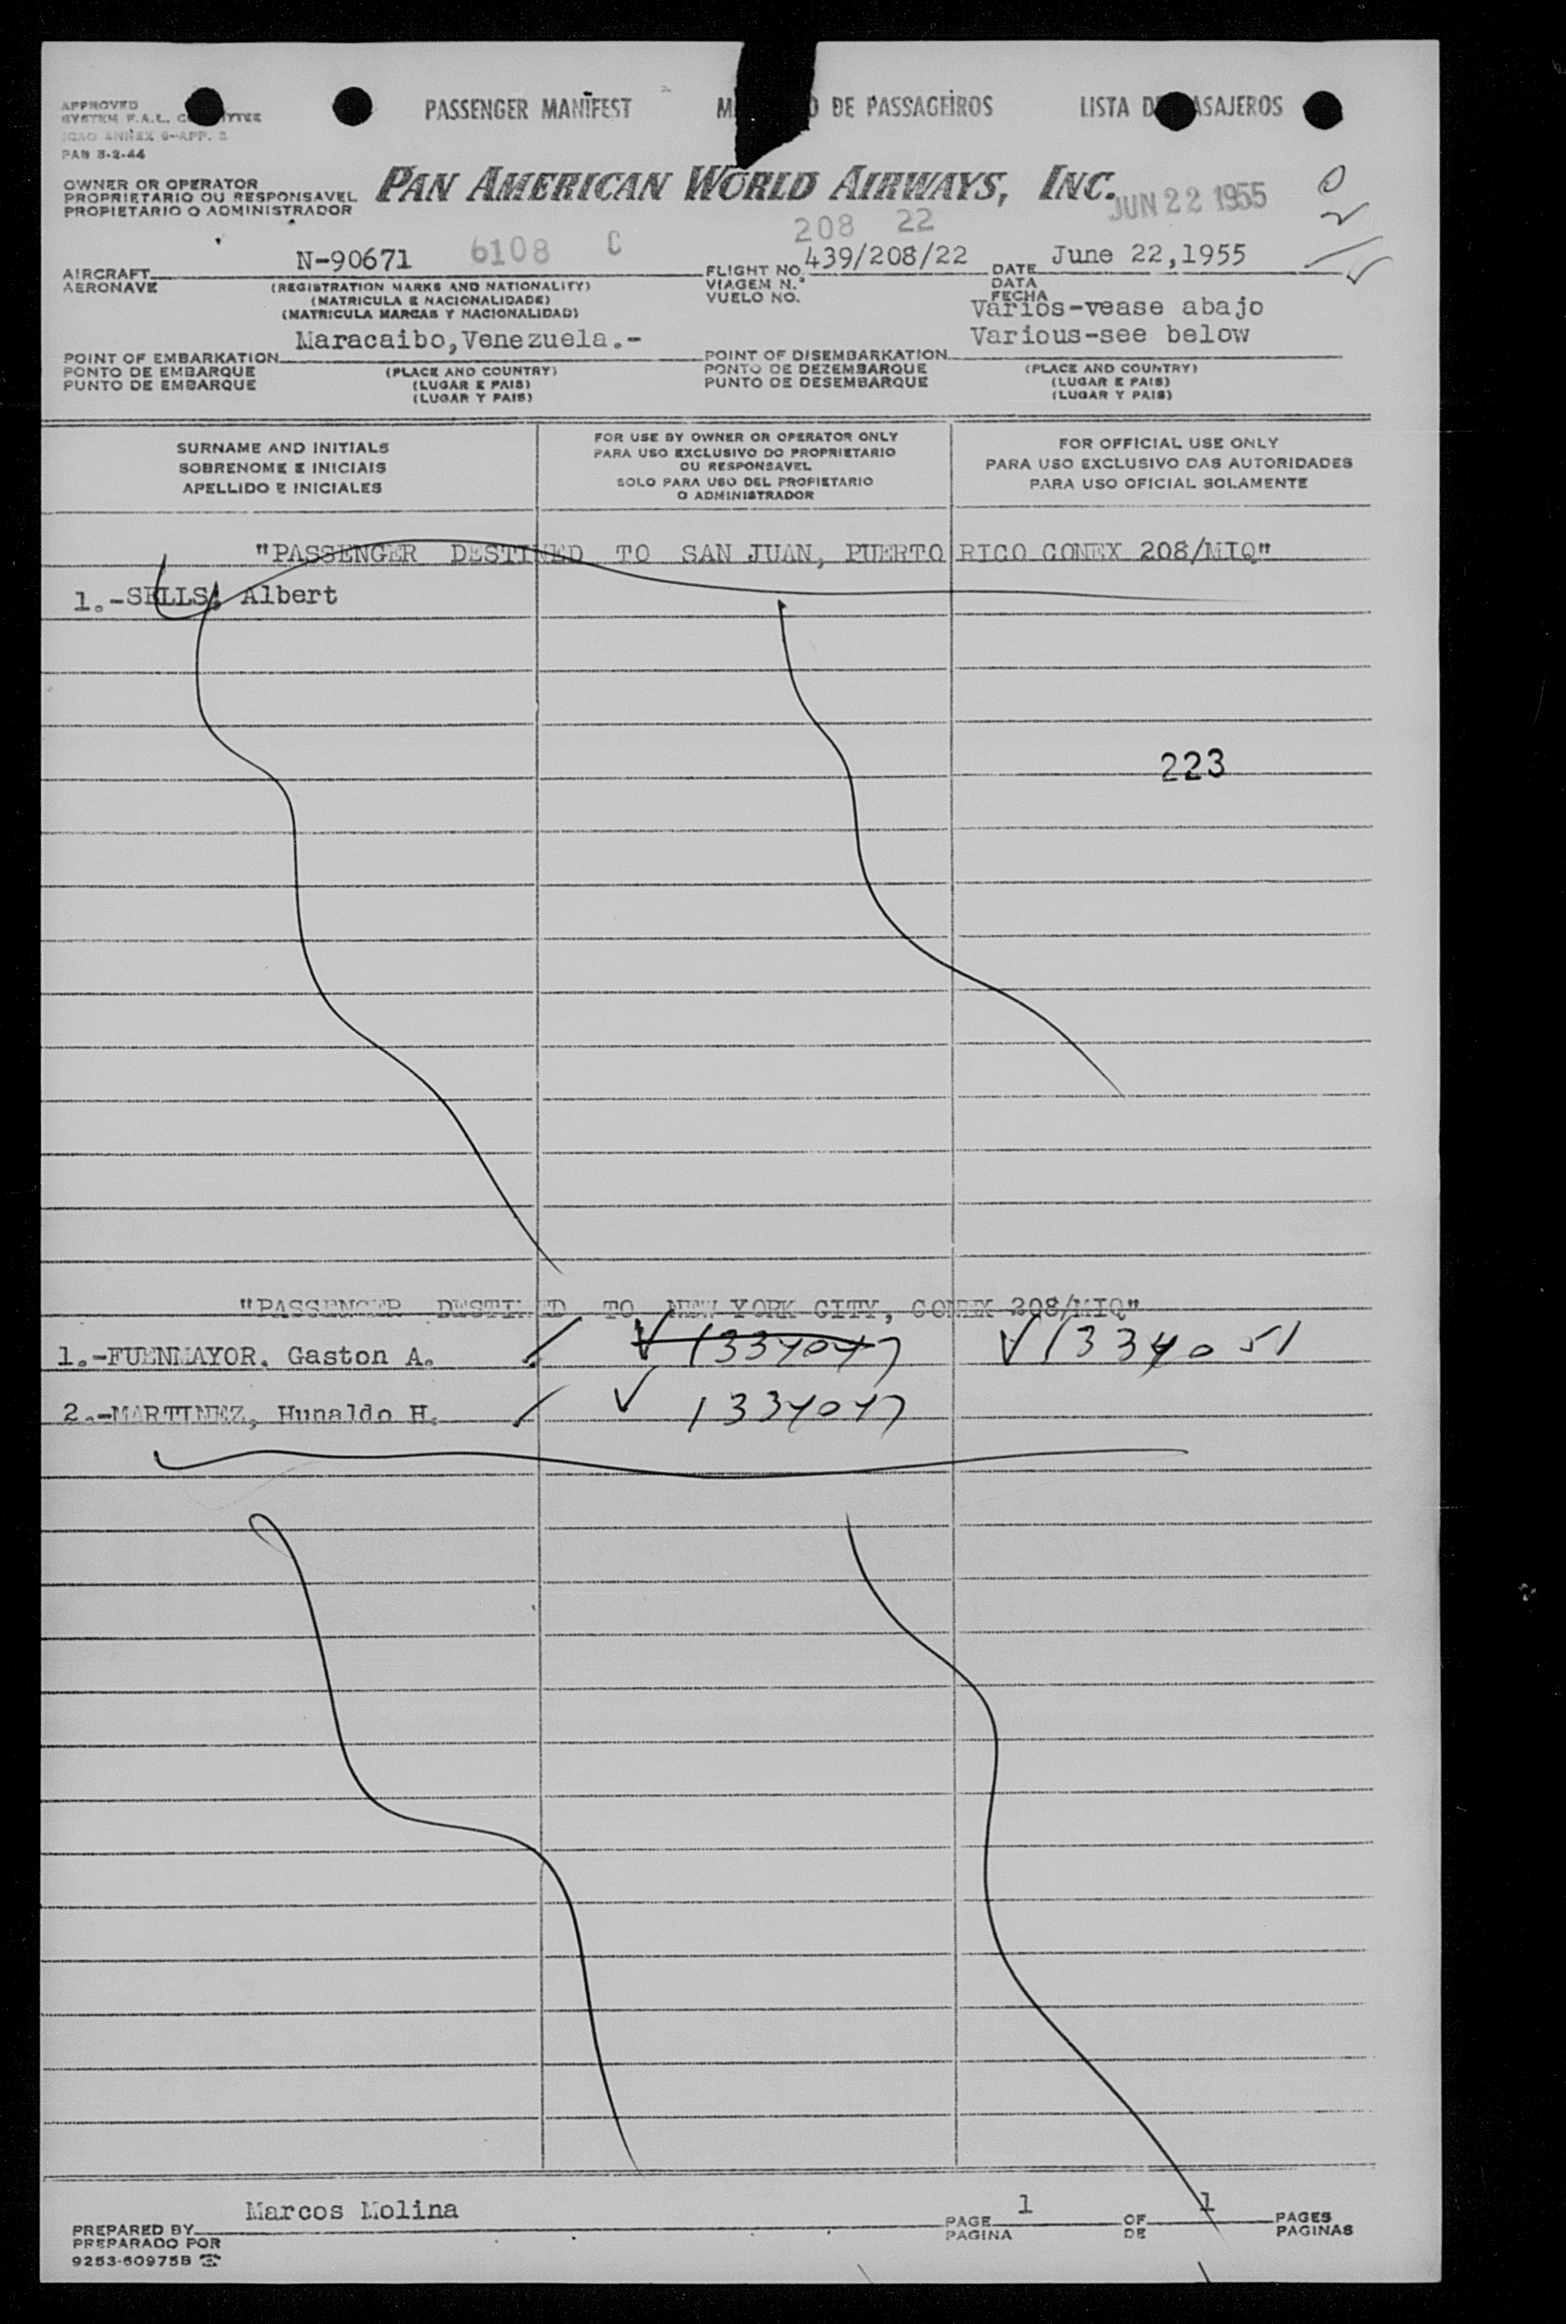 PASSENGER MANIFEST DE PASSAGEIROS LISTA
APPROVED
SYSTEM F.A.L.
ICAO ANNEX 9-APP. 2
PAN 3-2-44
PAN AMERICAN WORLD AIRWAYS, INC.
JUN 22 1955
OWNER OR OPERATOR
PROPRIETARIO OU RESPONSAVEL
PROPIETARIO O ADMINISTRADOR
208 22
N-90671 6108 C 439/208/22 June 22,1955
AIRCRAFT FLIGHT NO. DATE
AERONAVE (REGISTRATION MARKS AND NATIONALITY) VIAGEM N.º DATA
(MATRICULA E NACIONALIDADE) VUELO NO. FECHA
(MATRICULA MARCAS Y NACIONALIDAD)
Varios-vease abajo
Maracaibo,Venezuela.- Various-see below
POINT OF EMBARKATION POINT OF DISEMBARKATION
PONTO DE EMBARQUE (PLACE AND COUNTRY) PONTO DE DEZEMBARQUE (PLACE AND COUNTRY)
PUNTO DE EMBARQUE (LUGAR E PAIS) PUNTO DE DESEMBARQUE (LUGAR E PAIS)
(LUGAR Y PAIS) (LUGAR Y PAIS)
SURNAME AND INITIALS
SOBRENOME E INICIAIS
APELLIDO E INICIALES
FOR USE BY OWNER OR OPERATOR ONLY
PARA USO EXCLUSIVO DO PROPRIETARIO
OU RESPONSAVEL
SOLO PARA USO DEL PROPIETARIO
O ADMINISTRADOR
FOR OFFICIAL USE ONLY
PARA USO EXCLUSIVO DAS AUTORIDADES
PARA USO OFICIAL SOLAMENTE
"PASSENGER DESTINED TO SAN JUAN, PUERTO RICO CONEX 208/MIQ"
1.-SELLS, Albert
223
"PASSENGER DESTINED TO NEW YORK CITY, CONEX 208/MIQ"
1.-FUENMAYOR. Gaston A. / ✓ 1334047 ✓ 1334051
2.-MARTINEZ, Hunaldo H. / ✓ 1334047
Marcos Molina 1 1
PREPARED BY PAGE OF PAGES
PREPARADO POR PAGINA DE PAGINAS
9253-60975B